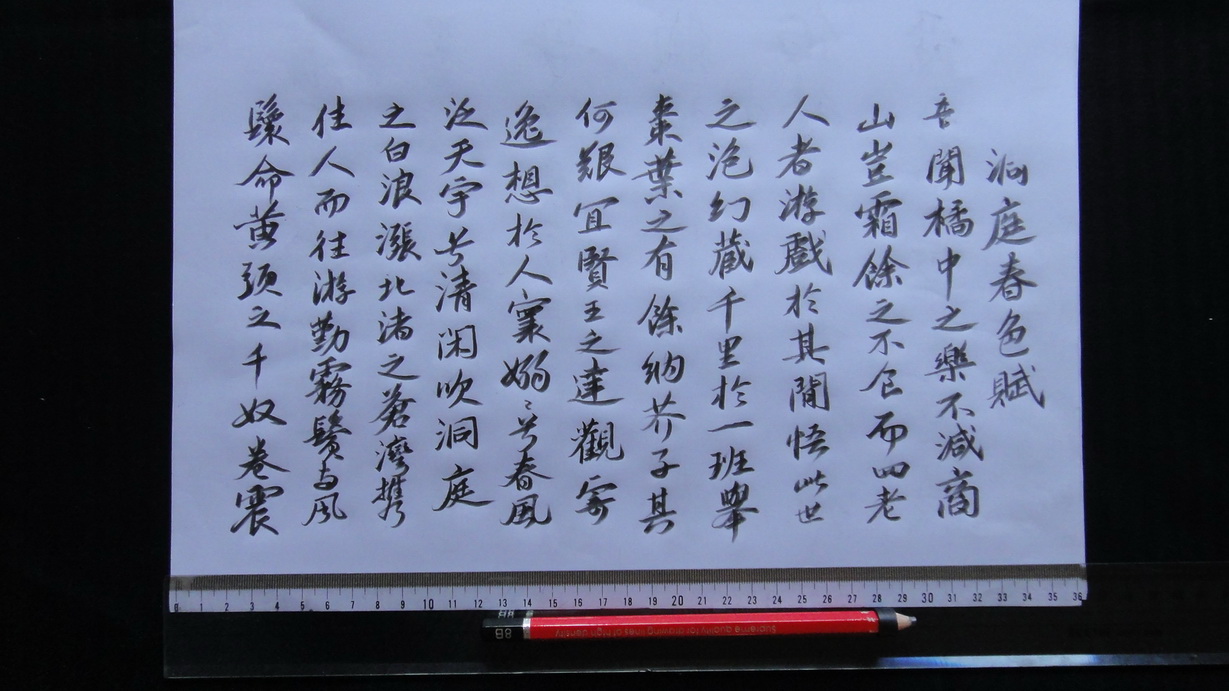 洞庭春色賦
吾聞橘中之樂不減商
山豈霜餘之不食而四老
人者游戲於其間悟此世
之泡幻藏千里於一班舉
棗葉之有餘納芥子其
何艱宜賢王之達觀寄
逸想於人寰嫋〻兮春風
泛天宇兮清閑吹洞庭
之白浪漲北渚之蒼灣攜
佳人而往游勤霧鬢與風
鬟命黃頭之千奴卷震
0 1 2 3 4 5 6 7 8 9 10 11 12 13 14 15 16 17 18 19 20 21 22 23 24 25 26 27 28 29 30 31 32 33 34 35 36
8B Supreme quality for drawing